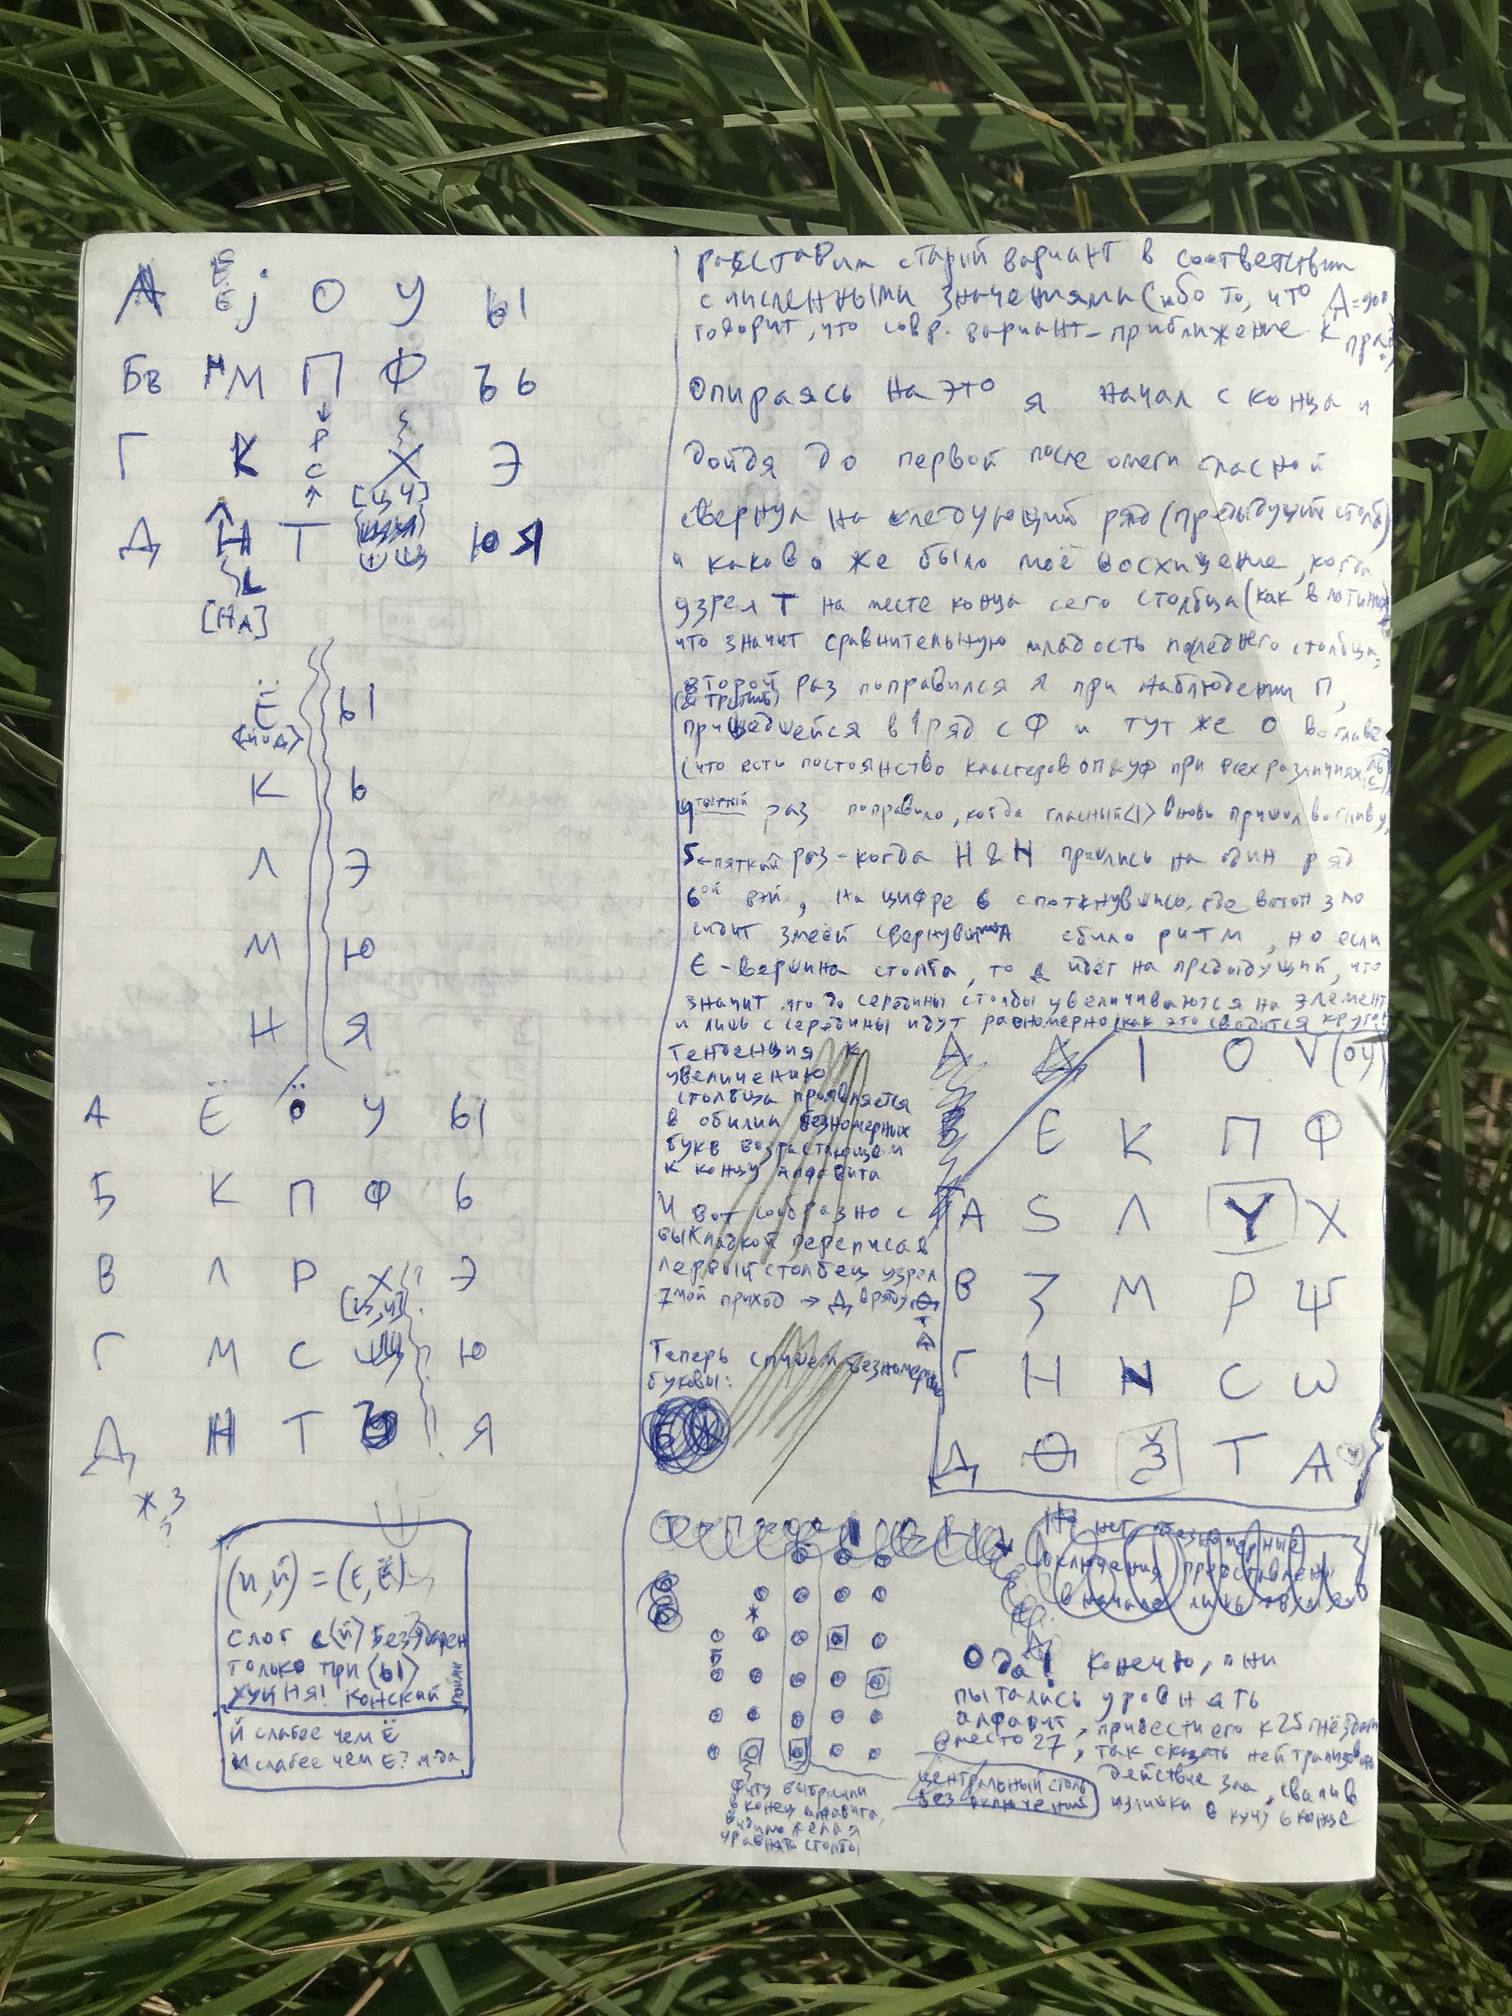 А Е Ё j О У Ы
Бв М П Ф Ъ Ь
Г К Р С Х Э
[Ц Ч]
Д Н Т Ю Я
[НА]
Ё Ы
<йод>
К Ь
Л Э
М Ю
Н Я
А Ё Ö У Ы
Б К П Ф Ь
В Л Р Х Э
[ц,ч]
Г М С Щ Ю
Д Н Т Ъ Я
Ж, З
?
(и,й) = (Е,Ё)
слог с (й) безударен
только при (ы)
ХУЙНЯ! Конский
й слабее чем Ё
и слабее чем Е? м-да
расставим старый вариант в соответствии
с численными значениями (ибо то, что Ѧ=900
говорит, что совр. вариант - приближение к
Опираясь на это я начал с конца и
дойдя до первой после омеги гласной
свернул на следующий ряд (предыдущий столб)
и каково же было моё восхищение, когда
узрел Т на месте конца сего столбца (как в латинице
что значит сравнительную младость последнего столбца,
второй раз поправился я при наблюдении П,
(& третий)
пришедшейся в 1 ряд с Ф и тут же О во главе
(что есть постоянство кластеров ОП&УФ при всех различиях
4 тый раз поправило, когда гласный <I> вновь пришол во главу,
5 ← пяткый раз - когда Н & N пришлись на один ряд
6ой раз, на цифре 6 споткнувшись, где зло
сидит змеёй свернувшися сбило ритм, но если
Є - вершина столба, то Д идёт на предыдущий, что
значит что до середины столбы увеличиваются на элемент
и лишь с середины идут равномерно (как это сводится
тенденция к
увеличению
столбца проявляется
в обилии безномерных
букв возрастающем
к концу алфавита
И вот сообразно с
выкладкой переписав
первый столбец узрел
7мой приход → Д вряд Ѳ
Т
Ѧ
Теперь спишем безномерные
буквы:
I О V (ОУ)
Є К П Ф
А Ѕ Λ Y Х
В З М Р Ψ
Г Н N С ω
Д Ѳ Ѯ Т Ѧ
Но нет безномерные
включения представлены
в начале лишь
О да! Конечно, они
пытались уровнять
алфавит, привести его к 25 гнёздам
вместо 27, так сказать нейтрализовать
действие зла, свалив
излишки в кучу в конце
центральный столб
без включений
Фиту выбросили
в конец алфавита,
видимо желая
уравнять столбы